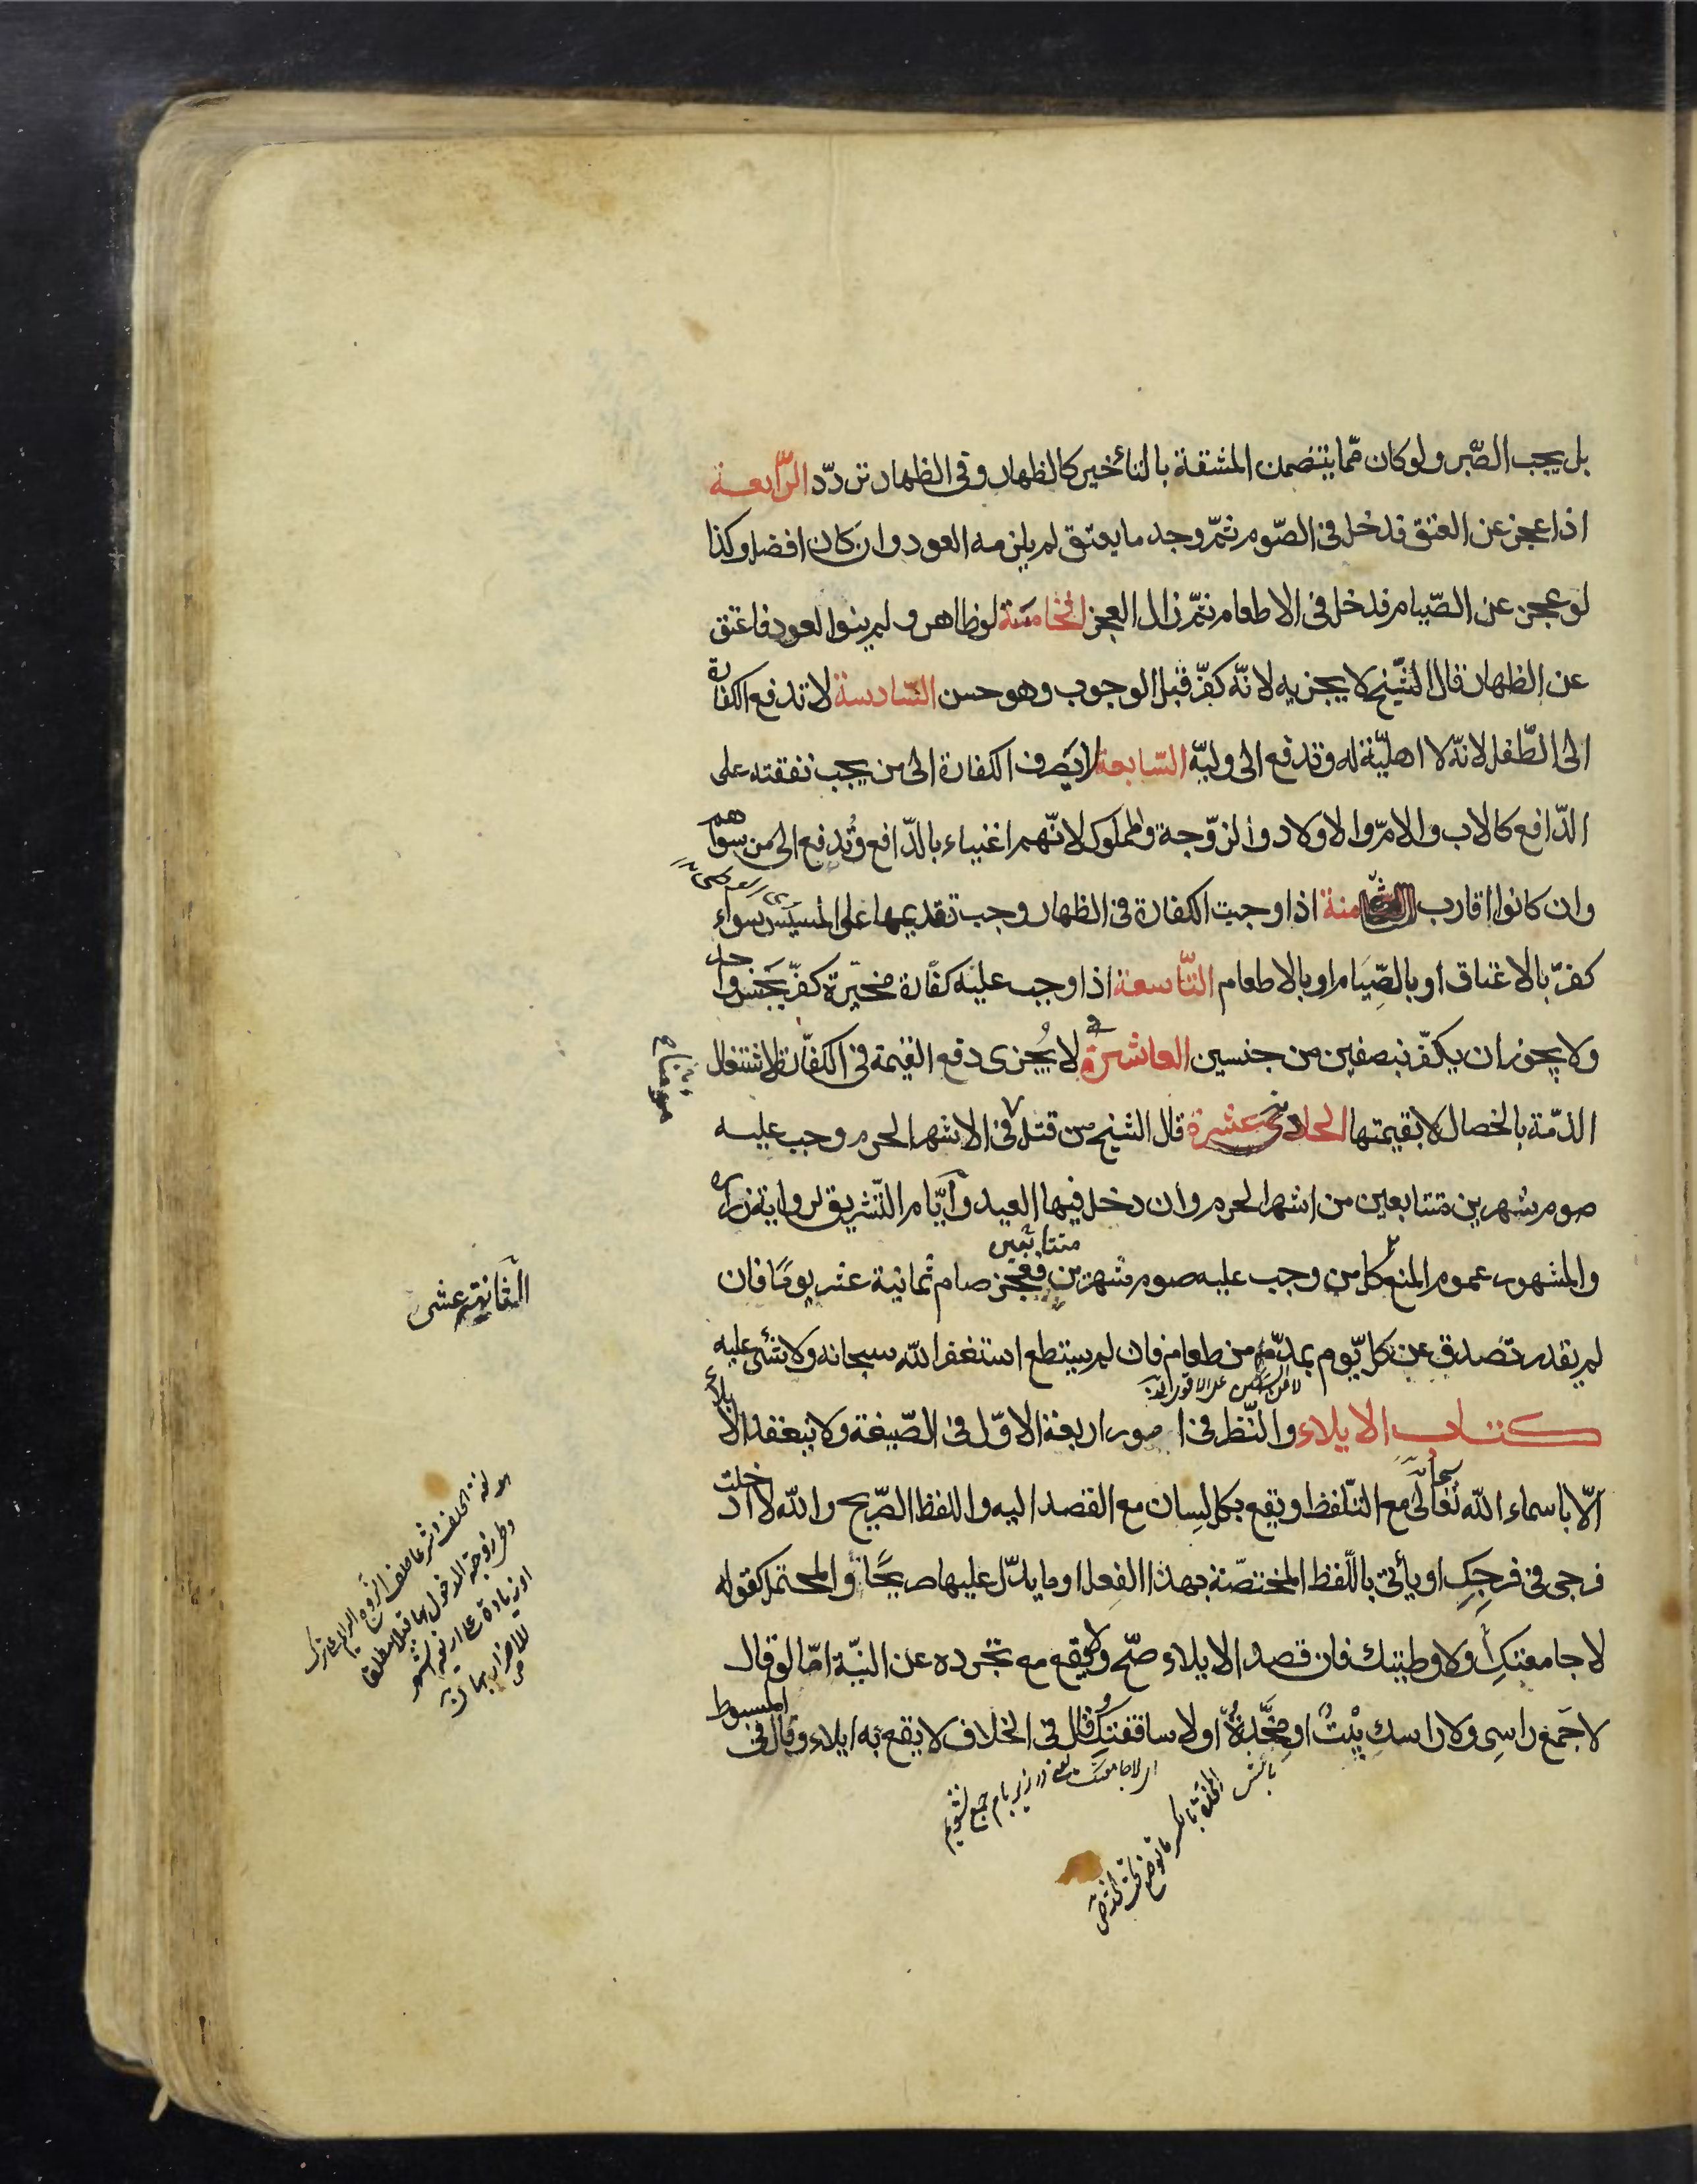 بل يجب الصّبر ولو كان ممّا يتضمن المشقة بالتأخير كالظهار وفى الظهار تردّد الرّابعة
اذا عجز عن العتق فدخل فى الصّوم ثمّ وجد ما يعتق لم يلزمه العود وان كان افضل وكذا
لو عجز عن الصّيام فدخل فى الاطعام ثمّ زال العجز الخامسة لو ظاهر ولم ينو العود فاعتق
عن الظهار قال الشّيخ لا يجزيه لانّه كفّر قبل الوجوب وهو حسن السّادسة لا تدفع الكفارة
الى الطّفل لانّه لا اهليّة له وتدفع الى وليّه السّابعة لا يصرف الكفارة الى من يجب نفقته على
الدّافع كالاب والامّ والاولاد والزّوجة والمملوك لانّهم اغنياء بالدّافع وتُدفع الى من سواهم
وان كانوا اقارب الثامنة اذا وجبت الكفارة فى الظهار وجب تقديمها على المسيس سواء
كفّر بالاعتاق او بالصّيام او بالاطعام التّاسعة اذا وجب عليه كفّارة مخيّرة كفّر بجنس واحد
ولا يجوز ان يكفّر بنصفين من جنسين العاشرة لا يُجزى دفع القيمة فى الكفّارة لاشتغال
الذمّة بالخصال لا بقيمتها الحادى عشرة قال الشيخ من قتل فى الاشهر الحرم وجب عليه
صوم شهرين متتابعين من اشهر الحرم وان دخل فيها العيد وايّام التّشريق لرواية زرارة
والمشهور عموم المنع كل من وجب عليه صوم شهرين متتابعين فعجز صام ثمانية عشر يومًا فان
الثانية عشر
لم يقدر تصدق عن كلّ يوم بمدّ من طعام فان لم يستطع استغفر اللّه سبحانه ولا شئ عليه
كتاب الايلاء والنّظر فى امور اربعة الاوّل فى الصّيغة ولا ينعقد الايلاء
الّا باسماء اللّه تعالى مع التّلفظ ويقع بكل لسان مع القصد اليه واللفظ الصّريح واللّه لا ادخلت
فرجى فى فرجكِ او يأتى باللّفظ المختصّة بهذا الفعل او ما يدّل عليها صريحًا والمحتمل كقوله
لا جامعتكِ ولا وطيتك فان قصد الايلاء صحّ ولا يقع مع تجرده عن النيّة امّا لو قال
لا جَمَع راسِى ولا راسك بيْتٌ او مخدّةٌ او لا ساقفتكِ قال فى الخلاف لا يقع به ايلاء وقال فى المبسوط